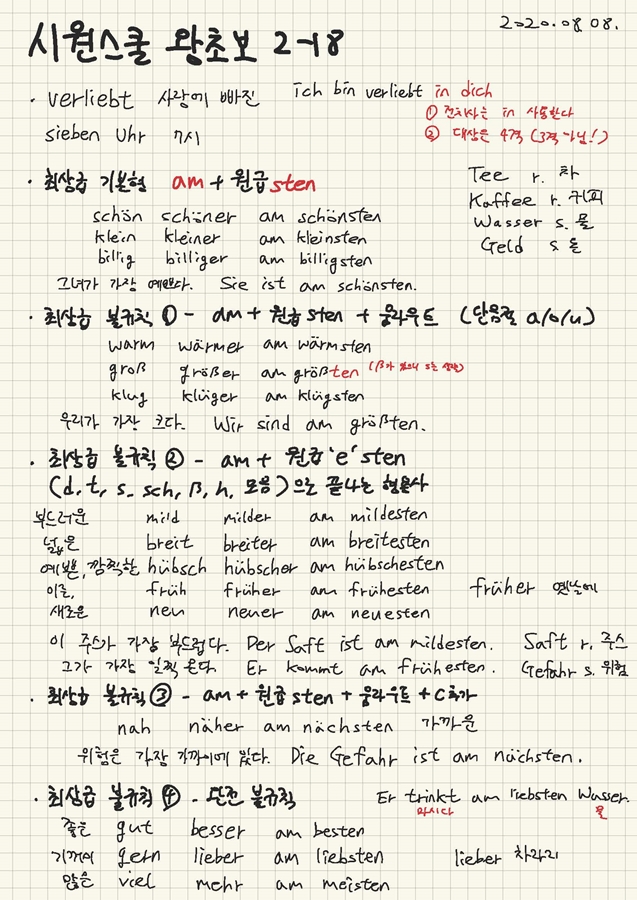 2020.08.08.
시원스쿨 왕초보 2-18
· verliebt 사랑에 빠진 ich bin verliebt in dich
① 전치사는 in 사용한다
sieben Uhr 7시 ② 대상은 4격 (3격 아님!)
· 최상급 기본형 am + 원급sten
Tee r. 차
Kaffee r. 커피
Wasser s. 물
Geld s. 돈
schön schöner am schönsten
klein kleiner am kleinsten
billig billiger am billigsten
그녀가 가장 예쁘다. Sie ist am schönsten.
· 최상급 불규칙 ① - am + 원급 sten + 움라우트 (단음절 a/o/u)
warm wärmer am wärmsten
groß größer am größten (ß가 있으니 s는 생략)
klug klüger am klügsten
우리가 가장 크다. Wir sind am größten.
· 최상급 불규칙 ② - am + 원급 'e' sten
(d, t, s, sch, ß, h, 모음)으로 끝나는 형용사
부드러운 mild milder am mildesten
넓은 breit breiter am breitesten
예쁜, 깜찍한 hübsch hübscher am hübschesten
이른, früh früher am frühesten früher 옛날에
새로운 neu neuer am neuesten
이 주스가 가장 부드럽다. Der Saft ist am mildesten. Saft r. 주스
그가 가장 일찍 온다. Er kommt am frühesten. Gefahr s. 위험
· 최상급 불규칙 ③ - am + 원급 sten + 움라우트 + c추가
nah näher am nächsten 가까운
위험은 가장 가까이에 있다. Die Gefahr ist am nächsten.
· 최상급 불규칙 ④ - 완전 불규칙 Er trinkt am liebsten Wasser.
마시다 물
좋은 gut besser am besten
기꺼이 gern lieber am liebsten lieber 차라리
많은 viel mehr am meisten